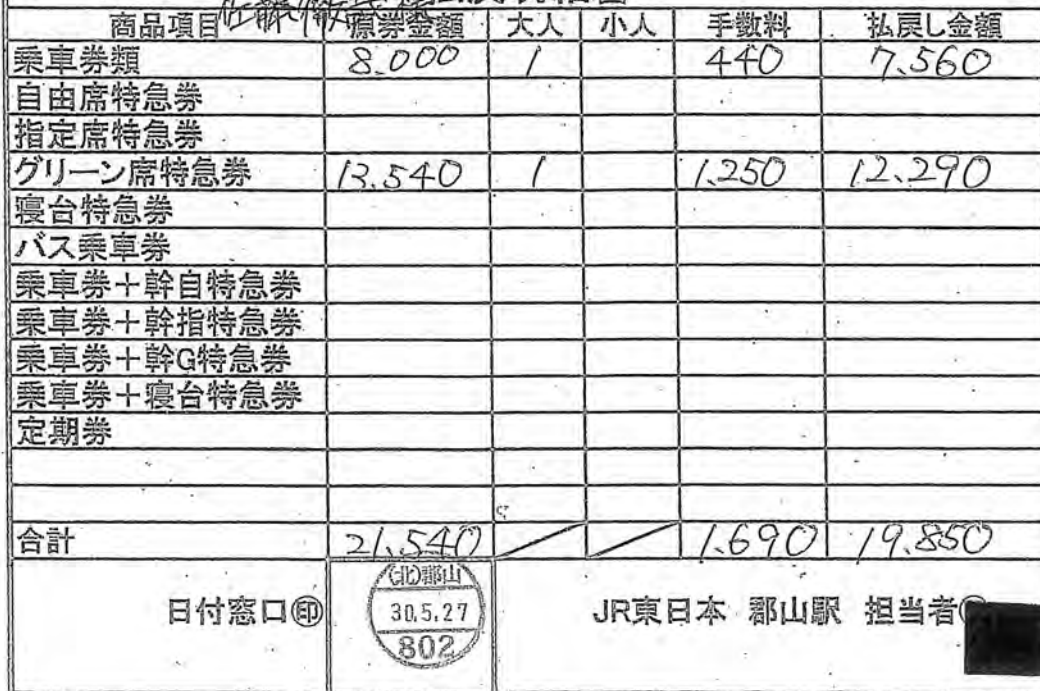 商品項目 原券金額 大人 小人 手数料 払戻し金額
乗車券類 8.000 1 440 7.560
自由席特急券
指定席特急券
グリーン席特急券 13.540 1 1.250 12.290
寝台特急券
バス乗車券
乗車券+幹自特急券
乗車券+幹指特急券
乗車券+幹G特急券
乗車券+寝台特急券
定期券
合計 21.540 1.690 19.850
日付窓口㊞ (北)郡山 30.5.27 802 JR東日本 郡山駅 担当者